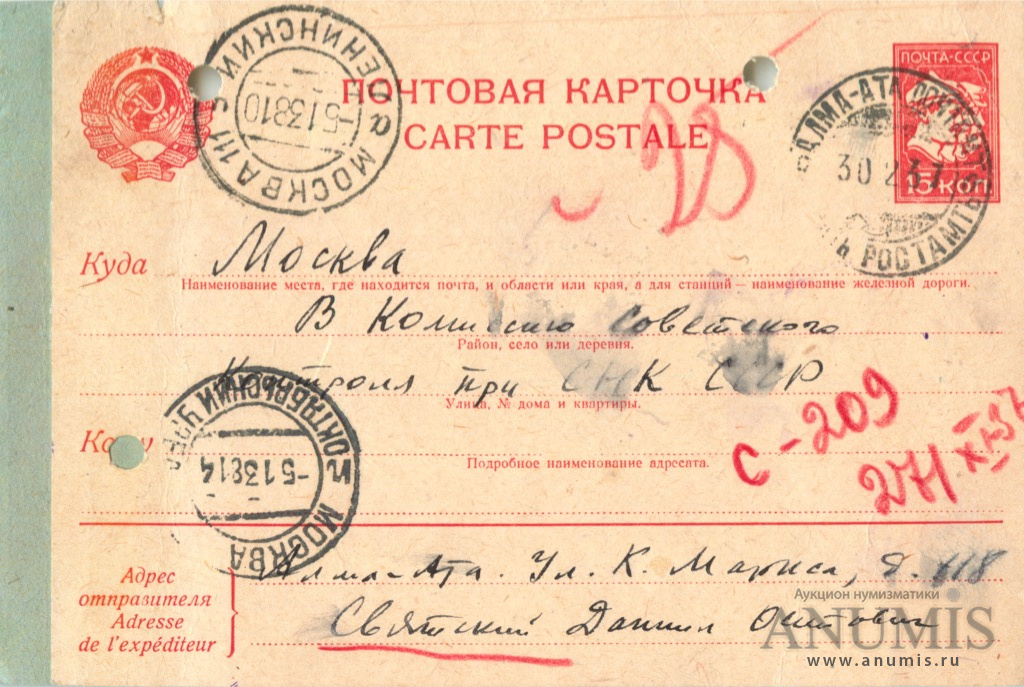 ПОЧТОВАЯ КАРТОЧКА
CARTE POSTALE
ПОЧТА-СССР
15 КОП.
МОСКВА 111 ЛЕНИНСКИЙ
-513810
АЛМА-АТА
30 2 37
РОСТАМТЬ
Куда Москва
Наименование места, где находится почта, и области или края, а для станций — наименование железной дороги.
В Комиссию Советского
Район, село или деревня.
Контроля при СНК СССР
Улица, № дома и квартиры.
Кому
Подробное наименование адресата.
С-209
27/XI-37
МОСКВА ОКТЯБРЬСКИЙ
-513814
Адрес отправителя
Adresse de l'expéditeur
Алма-Ата. Ул. К. Маркса, д. 118
Святский Даниил Осипович
Аукцион нумизматики
ANUMIS
www.anumis.ru